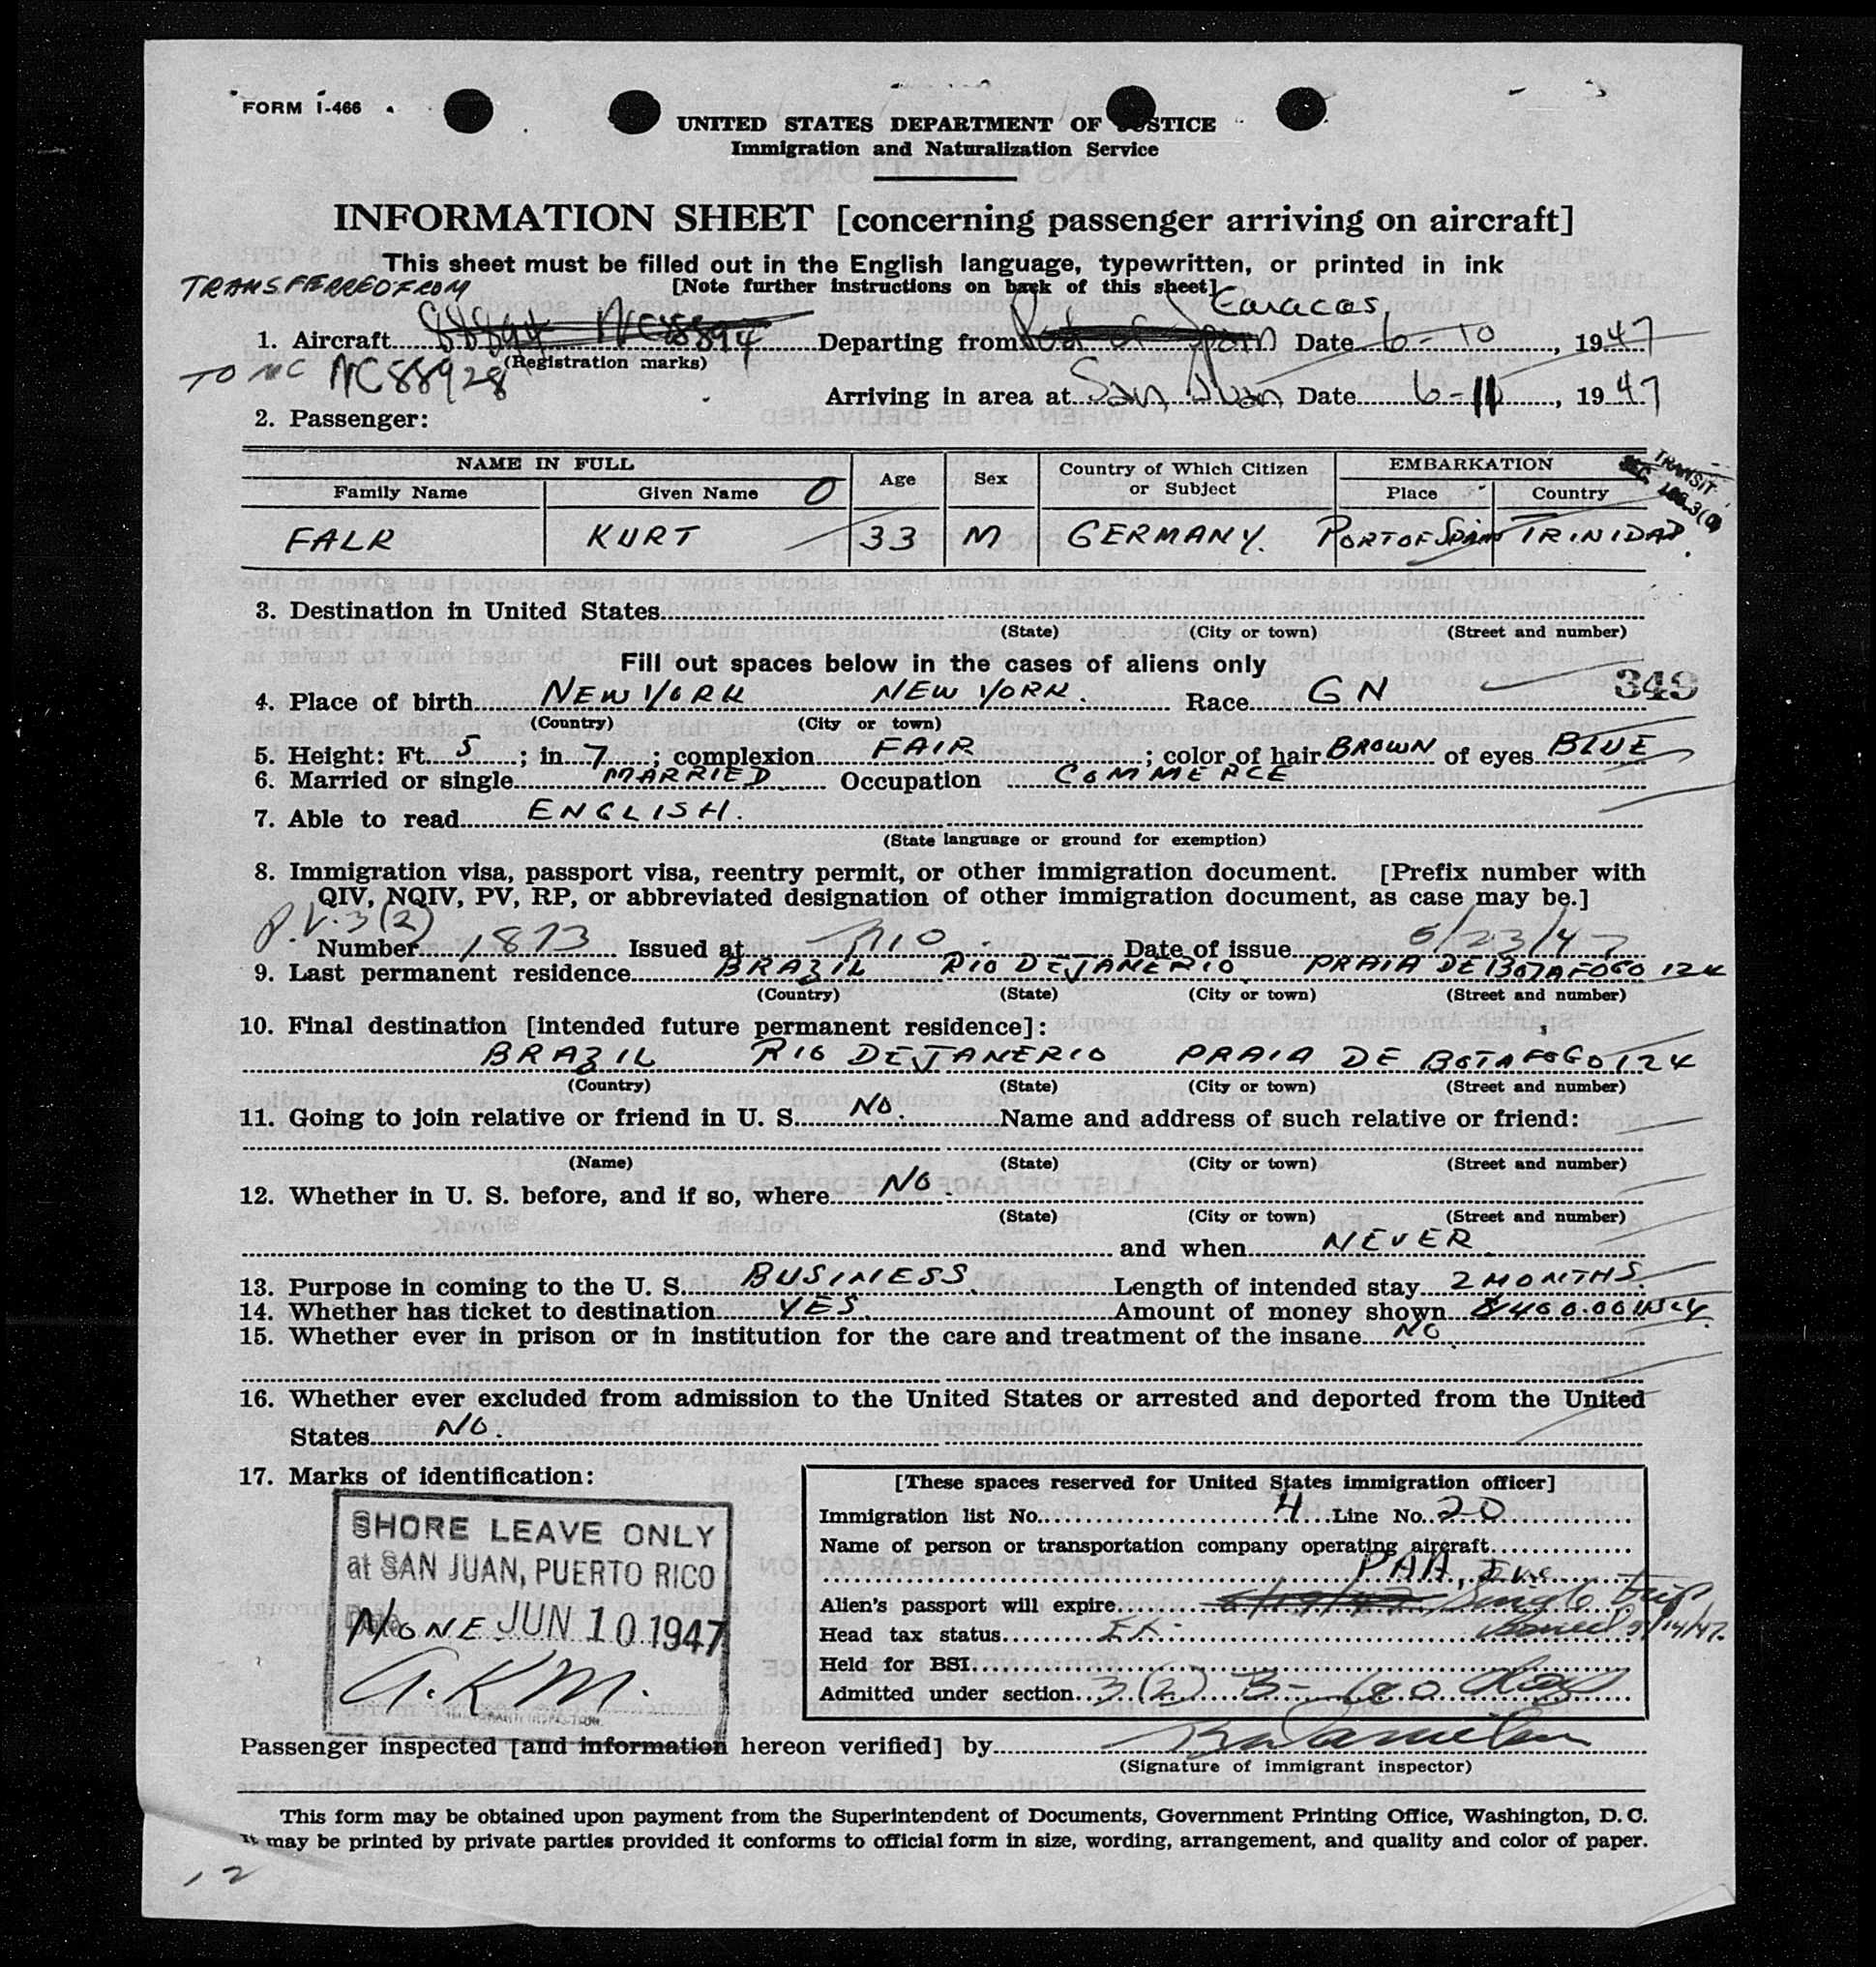 FORM I-466
UNITED STATES DEPARTMENT OF JUSTICE
Immigration and Naturalization Service
INFORMATION SHEET [concerning passenger arriving on aircraft]
This sheet must be filled out in the English language, typewritten, or printed in ink
TRANSFERRED FROM [Note further instructions on back of this sheet]
Caracas
1. Aircraft 88894 NC88894 Departing from Port of Spain Date 6-10, 1947
(Registration marks)
TO NC NC88928
Arriving in area at San Juan Date 6-11, 1947
2. Passenger:
NAME IN FULL Age Sex Country of Which Citizen or Subject EMBARKATION
Family Name Given Name O Place Country
TRANSIT
SEC.
FALK KURT 33 M GERMANY. PORT OF SPAIN TRINIDAD.
3. Destination in United States
(State) (City or town) (Street and number)
Fill out spaces below in the cases of aliens only
349
4. Place of birth NEW YORK NEW YORK. Race GN
(Country) (City or town)
5. Height: Ft. 5; in. 7; complexion FAIR; color of hair BROWN of eyes BLUE
6. Married or single MARRIED Occupation COMMERCE
7. Able to read ENGLISH.
(State language or ground for exemption)
8. Immigration visa, passport visa, reentry permit, or other immigration document. [Prefix number with
QIV, NQIV, PV, RP, or abbreviated designation of other immigration document, as case may be.]
P.V. 3(2)
Number 1873 Issued at RIO Date of issue 5/23/47
9. Last permanent residence BRAZIL RIO DE JANERIO PRAIA DE BOTAFOGO 124
(Country) (State) (City or town) (Street and number)
10. Final destination [intended future permanent residence]:
BRAZIL RIO DE JANERIO PRAIA DE BOTAFOGO 124
(Country) (State) (City or town) (Street and number)
11. Going to join relative or friend in U. S. NO. Name and address of such relative or friend:
(Name) (State) (City or town) (Street and number)
12. Whether in U. S. before, and if so, where NO.
(State) (City or town) (Street and number)
and when NEVER
13. Purpose in coming to the U. S. BUSINESS. Length of intended stay 2 MONTHS.
14. Whether has ticket to destination YES. Amount of money shown $400.00
15. Whether ever in prison or in institution for the care and treatment of the insane NO.
16. Whether ever excluded from admission to the United States or arrested and deported from the United
States NO.
17. Marks of identification:
SHORE LEAVE ONLY
at SAN JUAN, PUERTO RICO
NONE. JUN 10 1947
A.K.M.
[These spaces reserved for United States immigration officer]
Immigration list No. 4 Line No. 20
Name of person or transportation company operating aircraft
PAA, Inc
Alien's passport will expire Single trip
Head tax status EX. 5/14/47.
Held for BSI
Admitted under section 3(2) B- 60 days
Passenger inspected [and information hereon verified] by
(Signature of immigrant inspector)
This form may be obtained upon payment from the Superintendent of Documents, Government Printing Office, Washington, D. C.
It may be printed by private parties provided it conforms to official form in size, wording, arrangement, and quality and color of paper.
12